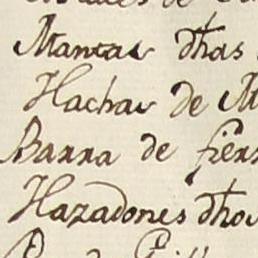 Mantas dhas
Hachas de
Barra de fierr
Hazadones dhos